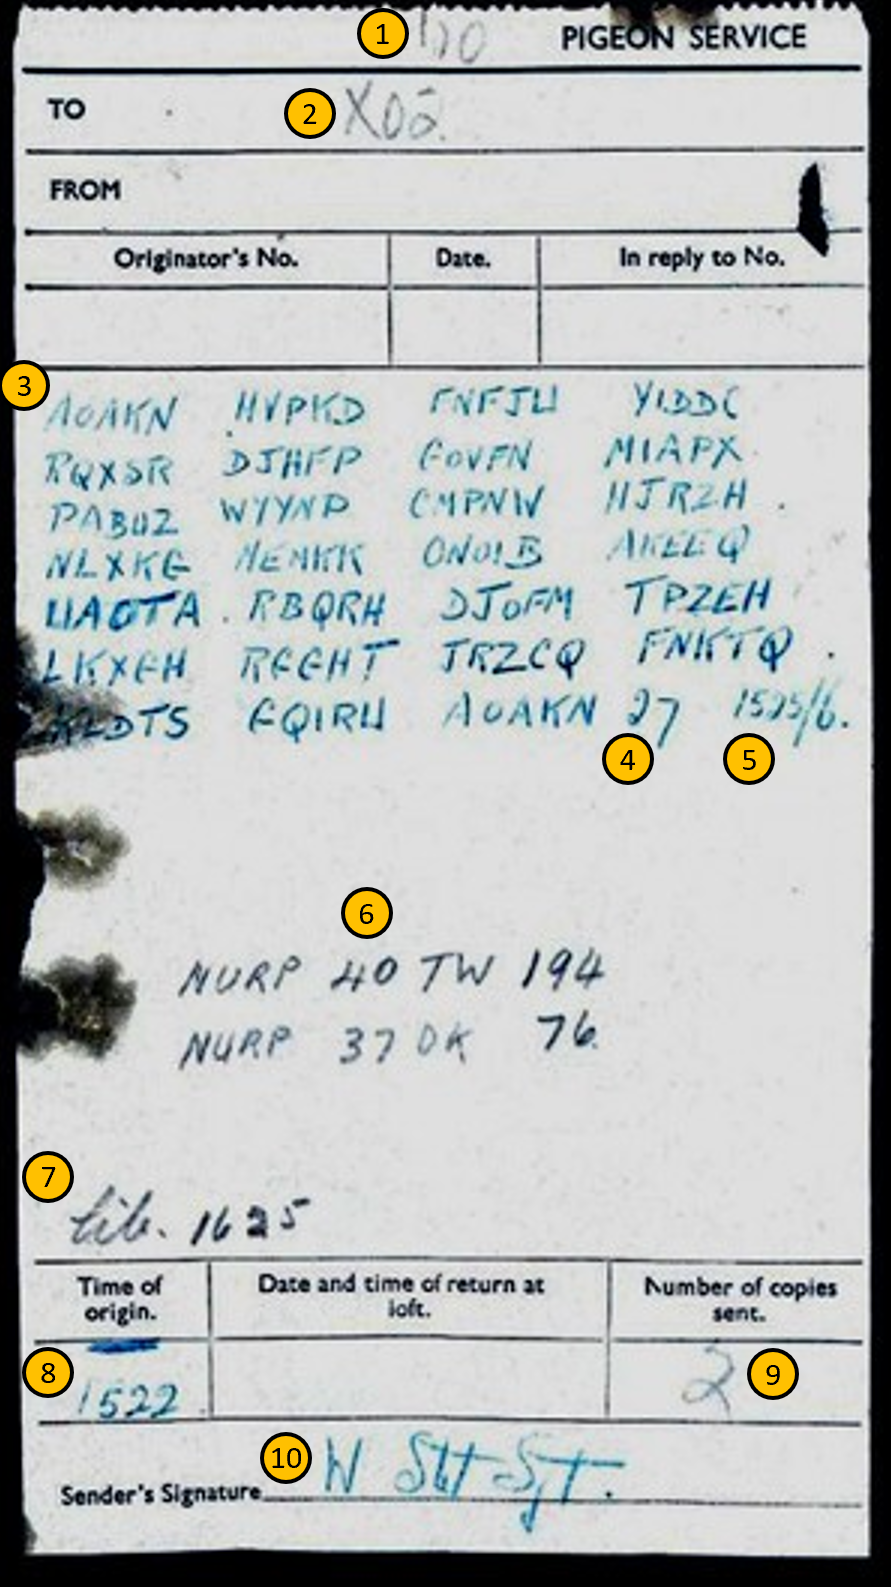 1 PIGEON SERVICE
TO 2 X02
FROM
Originator's No. Date. In reply to No.
3
AOAKN HVPKD FNFJU YIDDC
RQXSR DJHFP GOVFN MIAPX
PABUZ WYYNP CMPNW HJRZH
NLXKG MEMKK ONOIB AKEEQ
UAOTA RBQRH DJOFM TPZEH
LKXGH RGGHT JRZCQ FNKTQ
KLDTS GQIRU AOAKN 27 1525/6.
4 5
6
NURP 40 TW 194
NURP 37 DK 76.
7
lib. 1625
Time of origin. Date and time of return at loft. Number of copies sent.
8 1522 2 9
10
Sender's Signature W Stot Sjt.